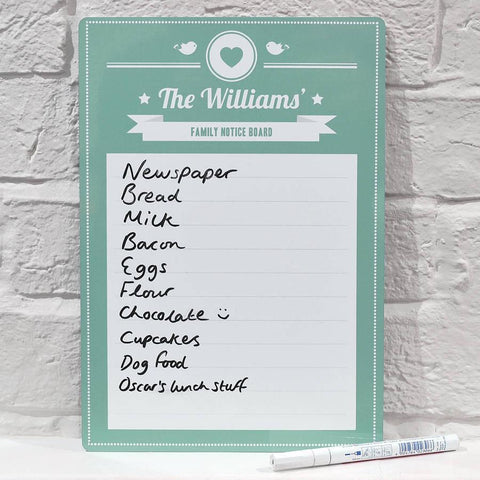 The Williams'
FAMILY NOTICE BOARD
Newspaper
Bread
Milk
Bacon
Eggs
Flour
Chocolate ☺
Cupcakes
Dog food
Oscar's lunch stuff